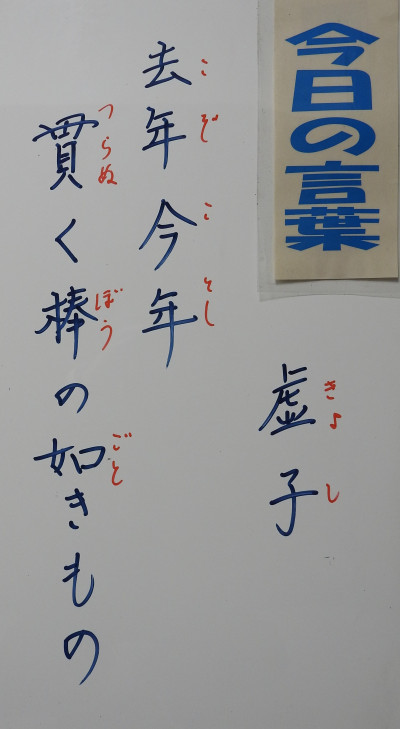 今日の言葉
虚子
きょし
去年今年
こぞことし
貫く棒の如きもの
つらぬ
ぼう
ごと